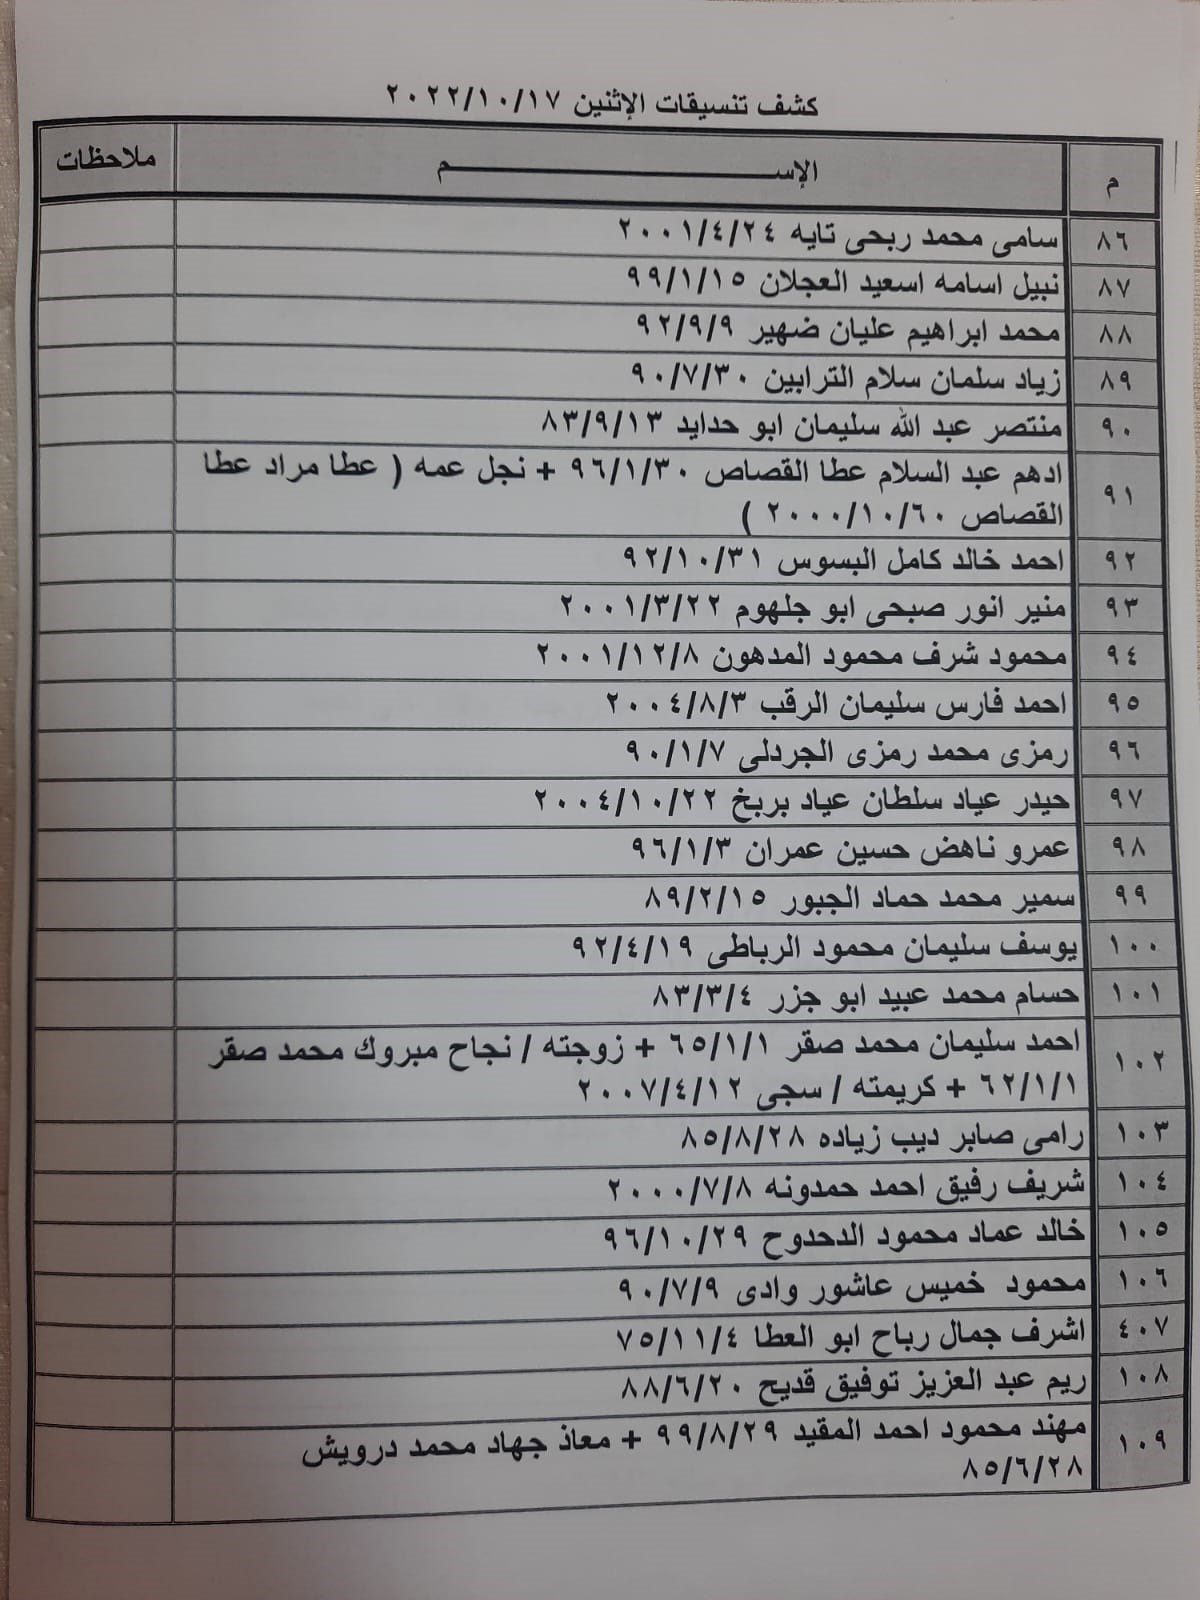 كشف تنسيقات الإثنين ٢٠٢٢/١٠/١٧
م الإســـــــــــــــــــــــم ملاحظات
٨٦ سامى محمد ربحى تايه ٢٠٠١/٤/٢٤
٨٧ نبيل اسامه اسعيد العجلان ٩٩/١/١٥
٨٨ محمد ابراهيم عليان ضهير ٩٢/٩/٩
٨٩ زياد سلمان سلام الترابين ٩٠/٧/٣٠
٩٠ منتصر عبد الله سليمان ابو حدايد ٨٣/٩/١٣
٩١ ادهم عبد السلام عطا القصاص ٩٦/١/٣٠ + نجل عمه ( عطا مراد عطا
القصاص ٢٠٠٠/١٠/٦٠ )
٩٢ احمد خالد كامل البسوس ٩٢/١٠/٣١
٩٣ منير انور صبحى ابو جلهوم ٢٠٠١/٣/٢٢
٩٤ محمود شرف محمود المدهون ٢٠٠١/١٢/٨
٩٥ احمد فارس سليمان الرقب ٢٠٠٤/٨/٣
٩٦ رمزى محمد رمزى الجردلى ٩٠/١/٧
٩٧ حيدر عياد سلطان عياد بربخ ٢٠٠٤/١٠/٢٢
٩٨ عمرو ناهض حسين عمران ٩٦/١/٣
٩٩ سمير محمد حماد الجبور ٨٩/٢/١٥
١٠٠ يوسف سليمان محمود الرباطى ٩٢/٤/١٩
١٠١ حسام محمد عبيد ابو جزر ٨٣/٣/٤
١٠٢ احمد سليمان محمد صقر ٦٥/١/١ + زوجته / نجاح مبروك محمد صقر
٦٢/١/١ + كريمته / سجى ٢٠٠٧/٤/١٢
١٠٣ رامى صابر ديب زياده ٨٥/٨/٢٨
١٠٤ شريف رفيق احمد حمدونه ٢٠٠٠/٧/٨
١٠٥ خالد عماد محمود الدحدوح ٩٦/١٠/٢٩
١٠٦ محمود خميس عاشور وادى ٩٠/٧/٩
٤٠٧ اشرف جمال رباح ابو العطا ٧٥/١١/٤
١٠٨ ريم عبد العزيز توفيق قديح ٨٨/٦/٢٠
١٠٩ مهند محمود احمد المقيد ٩٩/٨/٢٩ + معاذ جهاد محمد درويش
٨٥/٦/٢٨